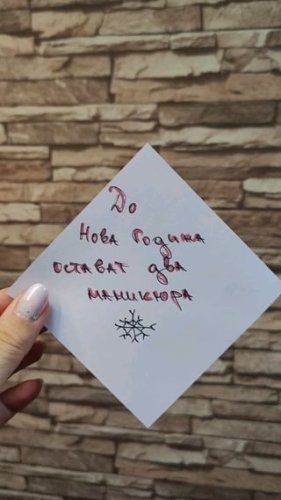 До
Нова година
остават два
маникюра